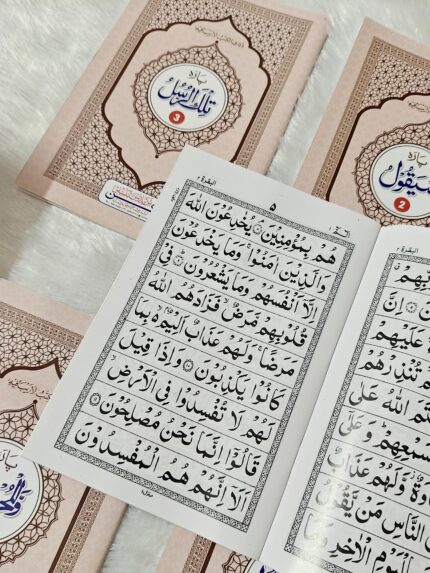 پارہ
تِلْكَ الرُّسُلُ
3
پارہ
سَيَقُوْلُ
2
البقرة ٢
٥
الٓمّٓ ١
هُمْ بِمُؤْمِنِيْنَ ۘ يُخٰدِعُوْنَ اللّٰهَ
وَالَّذِيْنَ اٰمَنُوْا ۚ وَمَا يَخْدَعُوْنَ
اِلَّاۤ اَنْفُسَهُمْ وَمَا يَشْعُرُوْنَ ؕ فِىْ
قُلُوْبِهِمْ مَّرَضٌ ۙ فَزَادَهُمُ اللّٰهُ
مَرَضًا ۚ وَلَهُمْ عَذَابٌ اَلِيْمٌۢ ۙ بِمَا
كَانُوْا يَكْذِبُوْنَ ۝ وَاِذَا قِيْلَ
لَهُمْ لَا تُفْسِدُوْا فِى الْاَرْضِ ۙ
قَالُوْاۤ اِنَّمَا نَحْنُ مُصْلِحُوْنَ ۝
اَلَاۤ اِنَّهُمْ هُمُ الْمُفْسِدُوْنَ
البقرة ٢
اِنَّ
عَلَيْهِمْ
تُنْذِرْهُمْ
اللّٰهُ عَلٰى
وَعَلٰٓى
وَّلَهُمْ عَذَابٌ
النَّاسِ مَنْ يَّقُوْلُ
الْيَوْمِ الْاٰخِرِ وَمَا